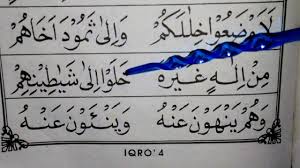 وَاِلٰى ثَمُوْدَ اَخَاهُمْ
لَاَوْضَعُوْا خِلٰلَكُمْ
خَلَوْا اِلٰى شَيٰطِيْنِهِمْ
مِنْ اِلٰهٍ غَيْرُهُ
وَيَنْئَوْنَ عَنْهُ
وَهُمْ يَنْهَوْنَ عَنْهُ
IQRO' 4